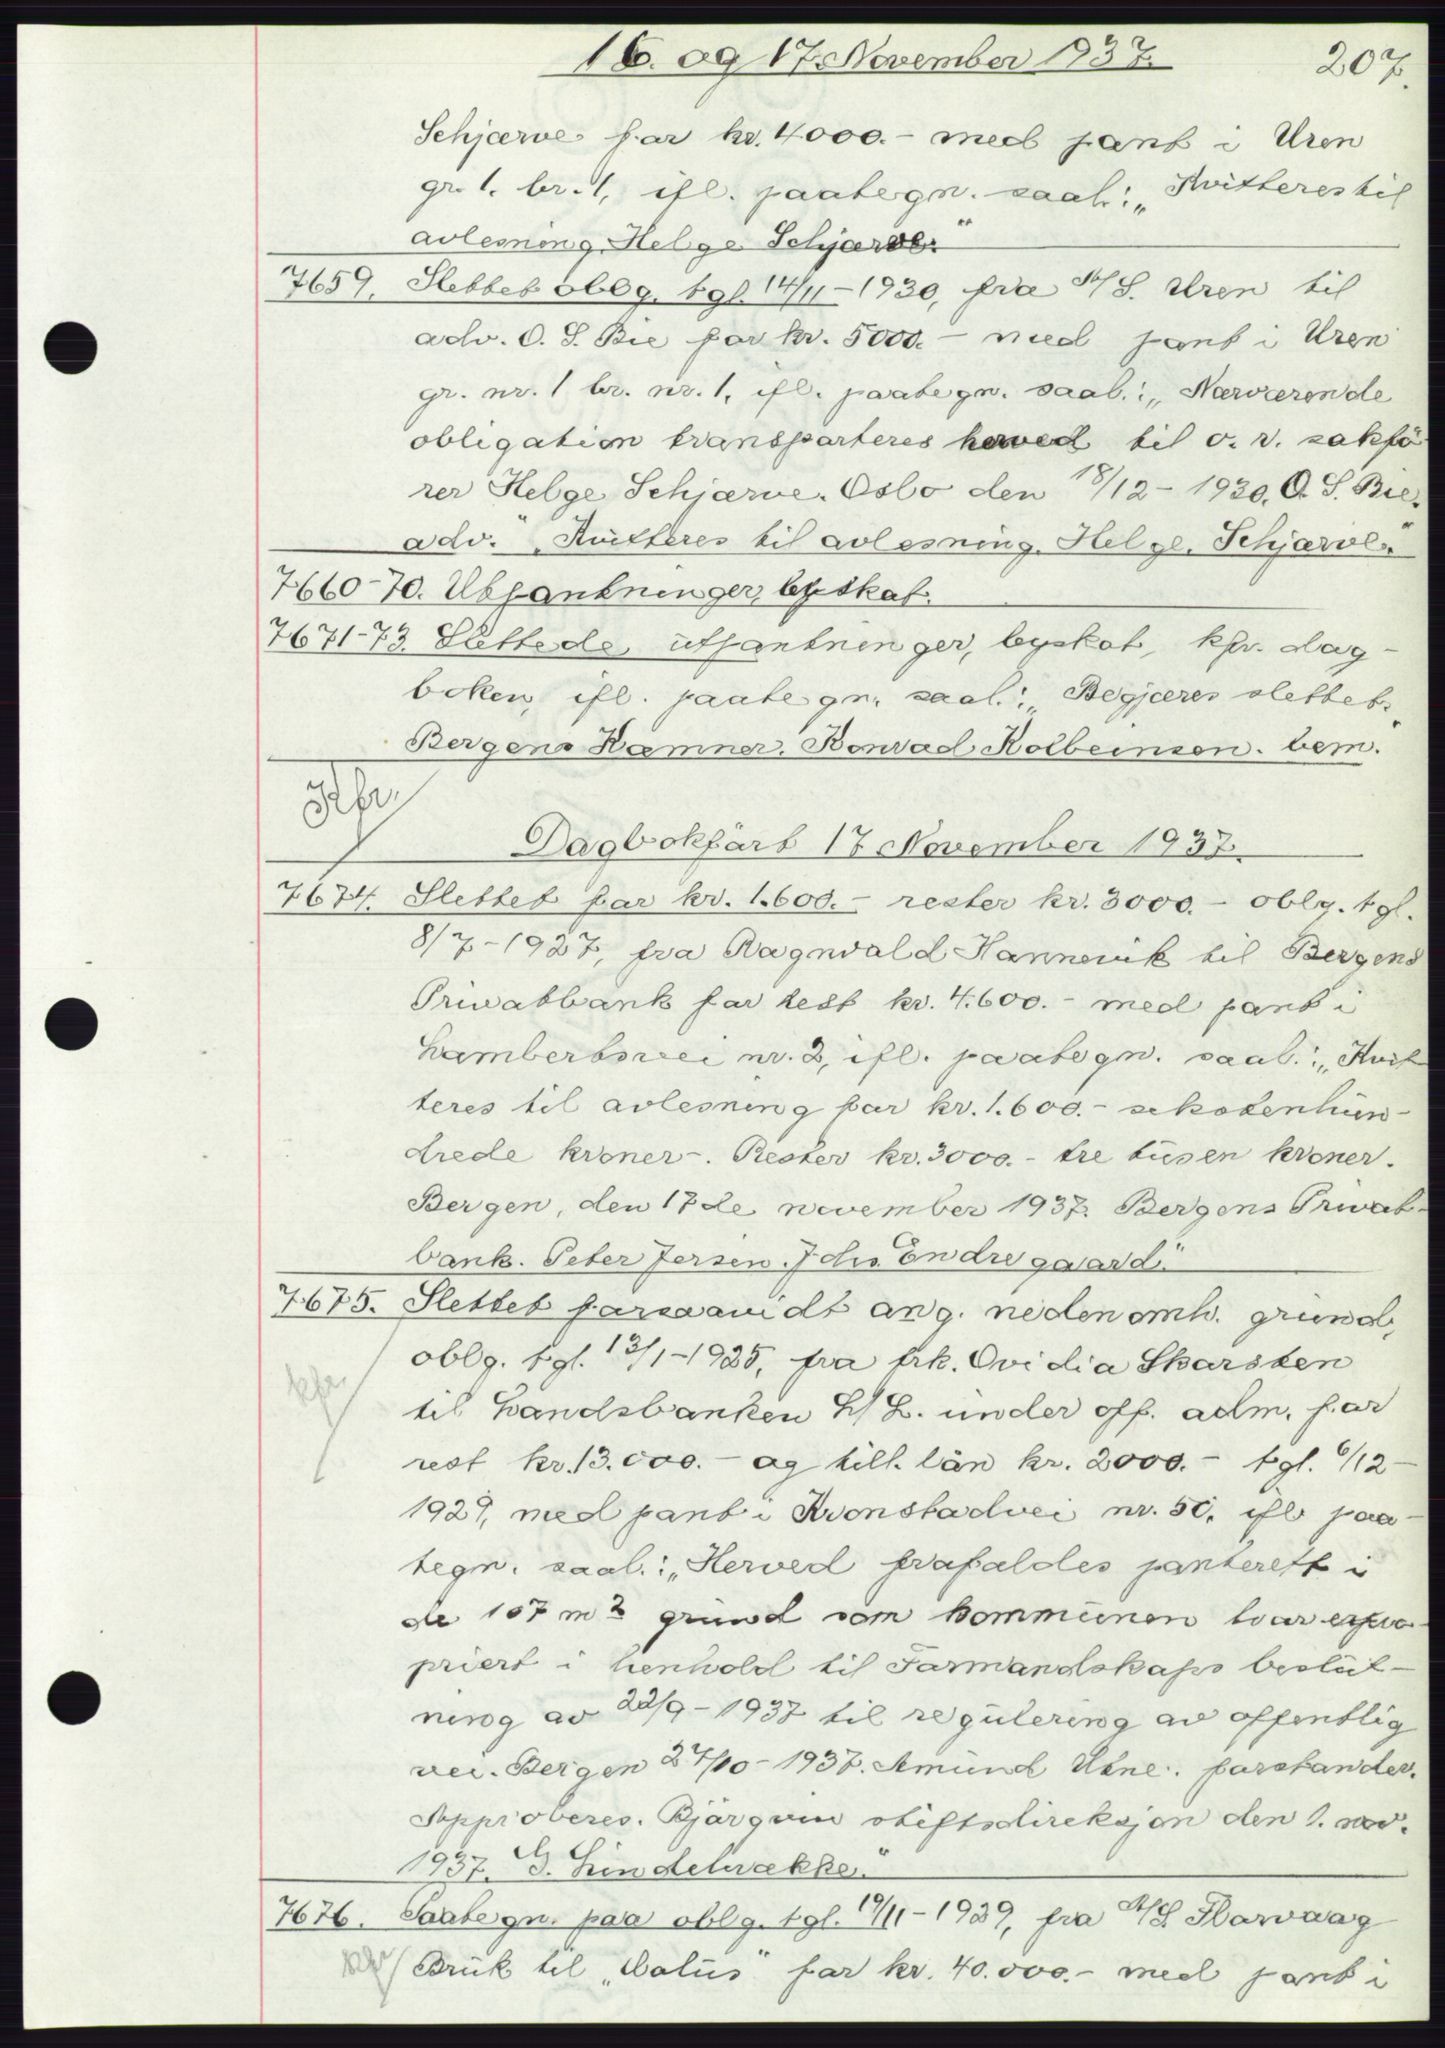 16. og 17. November 1937.
207.
Schjærve for kr. 4000.- med pant i Uren
gr. 1. br. 1, ifl. paategn. saal.: „Kvitteres til
avlesning. Helge Schjærve."
7659. Slettet oblg. tgl. 14/11-1930, fra A/S. Uren til
adv. O. S. Bie for kr. 5000.- med pant i Uren
gr. nr. 1 br. nr. 1, ifl. paategn. saal.: „Nærværende
obligation transporteres herved til o. r. sakfø
rer Helge Schjærve. Oslo den 18/12-1930. O. S. Bie.
adv." „Kvitteres til avlesning. Helge. Schjærve."
7660-70. Utpantninger, byskat.
7671-73. Slettede, utpantninger, byskat, kfr. dag-
boken, ifl. paategn. saal.: „Begjæres slettet.
Bergens Kæmner. Konrad Kolbeinsen. bem."
Kfr.
Dagbokført 17 November 1937.
7674. Slettet for kr. 1.600.- rester kr. 3000.- oblg. tgl.
8/7-1927, fra Ragnvald Hannevik til Bergens
Privatbank for rest kr. 4.600.- med pant i
Lambertsvei nr. 2, ifl. paategn. saal.: „Kvit
teres til avlesning for kr. 1.600.- sekstenhun-
drede kroner-. Rester kr. 3000.- tre tusen kroner.
Bergen, den 17de november 1937. Bergens Privat-
bank. Peter Jersin. Johs. Endregaard."
7675. Slettet forsaavidt ang. nedenomh. grund,
oblg. tgl. 13/1-1925, fra frk. Ovidia Skarsten
kfr
til Landsbanken L/L. under off. adm. for
rest kr. 13.000.- og till. lån kr. 2000.- tgl. 6/12-
1929, med pant i Kronstadvei nr. 50, ifl paa-
tegn. saal.: „Herved frafaldes panterett i
de 107 m2 grund som kommunen har expro-
priert i henhold til Formandskaps beslut-
ning av 22/9-1937 til regulering av offentlig
vei. Bergen 27/10-1937. Amund Utne. forstander.
Approberes. Bjørgvin stiftsdireksjon den 1. nov.
1937. G. Lindebrække."
7676. Paategn. paa oblg. tgl. 19/11-1929, fra A/S Florvaag
kfr Bruk til „Datus" for kr. 40.000.- med pant i